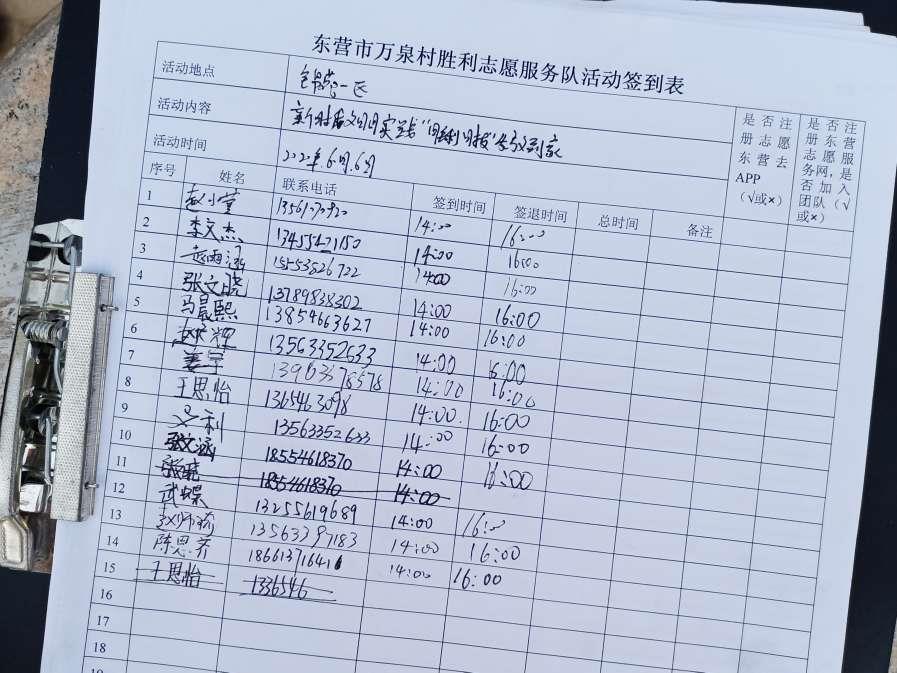 东营市万泉村胜利志愿服务队活动签到表
活动地点
活动内容 新时代文明实践
活动时间 2022年6月6日
序号 姓名 联系电话 签到时间 签退时间 总时间 备注
是否注册志愿东营去APP(√或×)
是否注册东营志愿服务网,是否加入团队(√或×)
1 赵小萱 14:00 16:00
2 李文杰 13455421150 14:00 16:00
3 赵雨涵 15553526722 14:00 16:00
4 张文晓 13789838302 14:00 16:00
5 马晨熙 13854663627 14:00 16:00
6 13563352633 14:00 16:00
7 姜宇 13963378578 14:00 16:00
8 王思怡 1365463098 14:00 16:00
9 利 13563352633 14:00 16:00
10 张文涵 18554618370 14:00 16:00
11 18554618370 14:00
12 武蝶 13255619689 14:00 16:00
13 13563397183 14:00 16:00
14 陈思齐 18661371641 14:00 16:00
15 王思怡 1336546
16
17
18
19